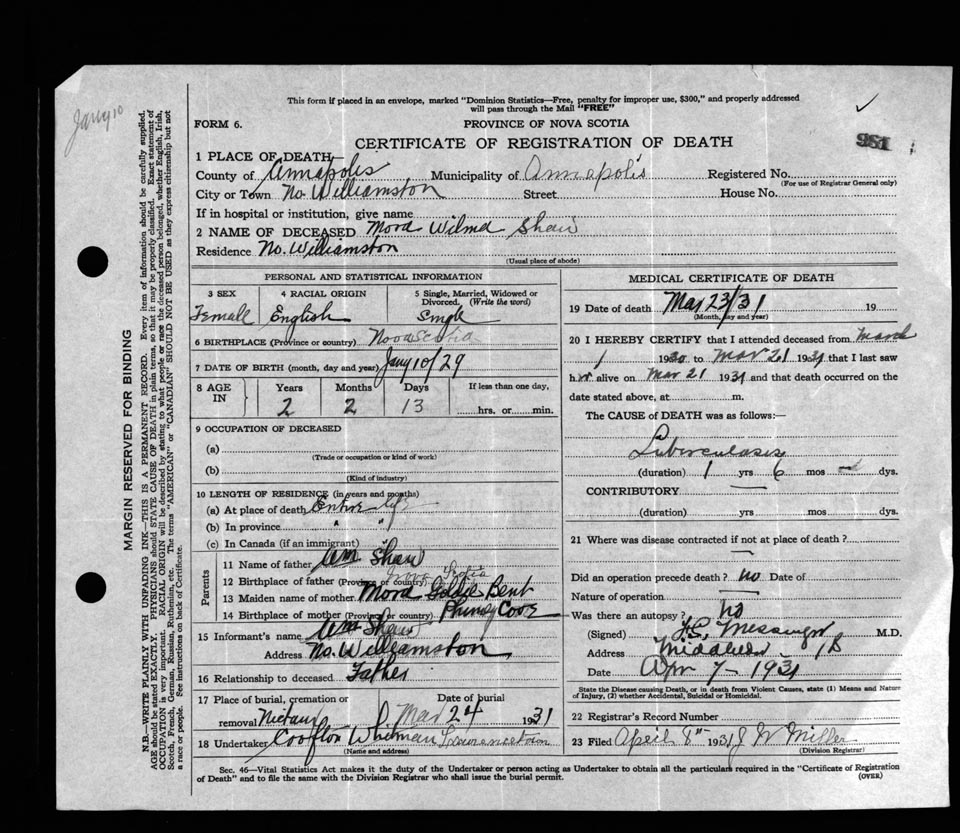 This form if placed in an envelope, marked "Dominion Statistics—Free, penalty for improper use, $300," and properly addressed
will pass through the Mail "FREE"
Jany 10
FORM 6.
PROVINCE OF NOVA SCOTIA
951
CERTIFICATE OF REGISTRATION OF DEATH
1 PLACE OF DEATH
County of Annapolis Municipality of Annapolis Registered No.
(For use of Registrar General only)
City or Town No. Williamston Street House No.
If in hospital or institution, give name
2 NAME OF DECEASED Mora Wilma Shaw
Residence No. Williamston
(Usual place of abode)
MARGIN RESERVED FOR BINDING
N.B.—WRITE PLAINLY WITH UNFADING INK—THIS IS A PERMANENT RECORD. Every item of information should be carefully supplied.
AGE should be stated EXACTLY. PHYSICIANS should STATE CAUSE OF DEATH in plain terms, so that it may be properly classified. Exact statement of
OCCUPATION is very important. RACIAL ORIGIN will be described by stating to what people or race the deceased person belonged, whether English, Irish,
Scotch, French, German, Russian, Ruthenian, etc. The terms "AMERICAN" or "CANADIAN" SHOULD NOT BE USED as they express citizenship but not
a race or people. See instructions on back of Certificate.
PERSONAL AND STATISTICAL INFORMATION
3 SEX 4 RACIAL ORIGIN 5 Single, Married, Widowed or
Divorced. (Write the word)
Female English Single
6 BIRTHPLACE (Province or country) Nova Scotia
7 DATE OF BIRTH (month, day and year) Jany 10/29
8 AGE IN Years Months Days If less than one day,
2 2 13 hrs. or min.
9 OCCUPATION OF DECEASED
(a)
(Trade or occupation or kind of work)
(b)
(Kind of industry)
10 LENGTH OF RESIDENCE (in years and months)
(a) At place of death Entire life
(b) In province " "
(c) In Canada (if an immigrant)
Parents
11 Name of father Wm Shaw
12 Birthplace of father (Province or country) Nova Scotia
13 Maiden name of mother Mora Goldie Bent
14 Birthplace of mother (Province or country) Phinney Cove
15 Informant's name Wm Shaw
Address No. Williamston
16 Relationship to deceased Father
17 Place of burial, cremation or Date of burial
removal Nictaux Mar 24 1931
18 Undertaker Whitman Lawrencetown
(Name and address)
MEDICAL CERTIFICATE OF DEATH
19 Date of death Mar 23/31 19
(Month, day and year)
20 I HEREBY CERTIFY that I attended deceased from March
1 1930 to Mar 21 1931 that I last saw
her alive on Mar 21 1931 and that death occurred on the
date stated above, at m.
The CAUSE of DEATH was as follows:—
Tuberculosis
(duration) 1 yrs 6 mos dys.
CONTRIBUTORY
(duration) yrs. mos. dys.
21 Where was disease contracted if not at place of death?
Did an operation precede death? no Date of
Nature of operation
Was there an autopsy? no
(Signed) Messenger M.D.
Address Middleton
Date Apr 7 - 1931
State the Disease causing Death, or in death from Violent Causes, state (1) Means and Nature
of Injury, (2) whether Accidental, Suicidal or Homicidal.
22 Registrar's Record Number
23 Filed April 8th 1931 J W Miller
(Division Registrar)
Sec. 46—Vital Statistics Act makes it the duty of the Undertaker or person acting as Undertaker to obtain all the particulars required in the "Certificate of Registration
of Death" and to file the same with the Division Registrar who shall issue the burial permit. (OVER)